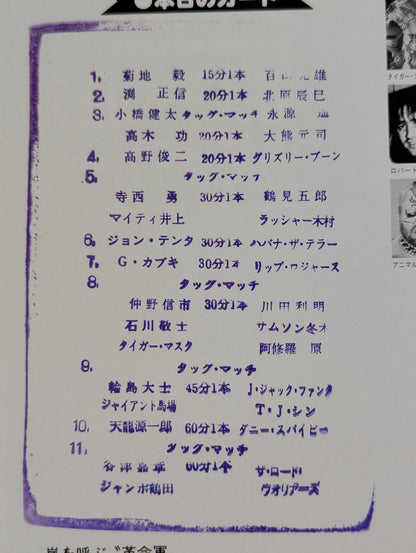 ●本日のカード
1, 菊地 毅 15分1本 百田光雄
2. 渕 正信 20分1本 北原辰巳
3. 小橋健太 タッグ・マッチ 永源 遥
高木 功 20分1本 大熊元司
4. 高野俊二 20分1本 グリズリー・ブーン
5. タッグ・マッチ
寺西 勇 30分1本 鶴見五郎
マイティ井上 ラッシャー木村
6. ジョン・テンタ 30分1本 ハバナ・ザ・テラー
7. G・カブキ 30分1本 リップ・ロジャース
8. タッグ・マッチ
仲野信市 30分1本 川田利明
石川敬士 サムソン冬木
タイガー・マスク 阿修羅 原
9. タッグ・マッチ
輪島大士 45分1本 J・ジャック・ファンク
ジャイアント馬場 T・J・シン
10. 天龍源一郎 60分1本 ダニー・スパイビー
11. タッグ・マッチ
谷津嘉章 60分1本 ザ・ロード・
ジャンボ鶴田 ウォリアーズ
タイガー・
ロバート
アニマル
嵐を呼ぶ〝革命軍